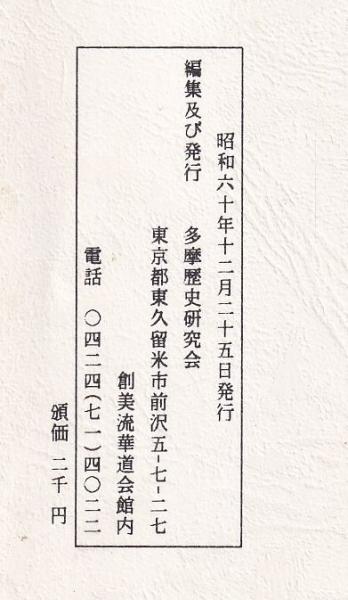 昭和六十年十二月二十五日発行
編集及び発行　多摩歴史研究会
東京都東久留米市前沢五-七-二七
創美流華道会館内
電話　〇四二四(七一)四〇二二
頒価　二千円